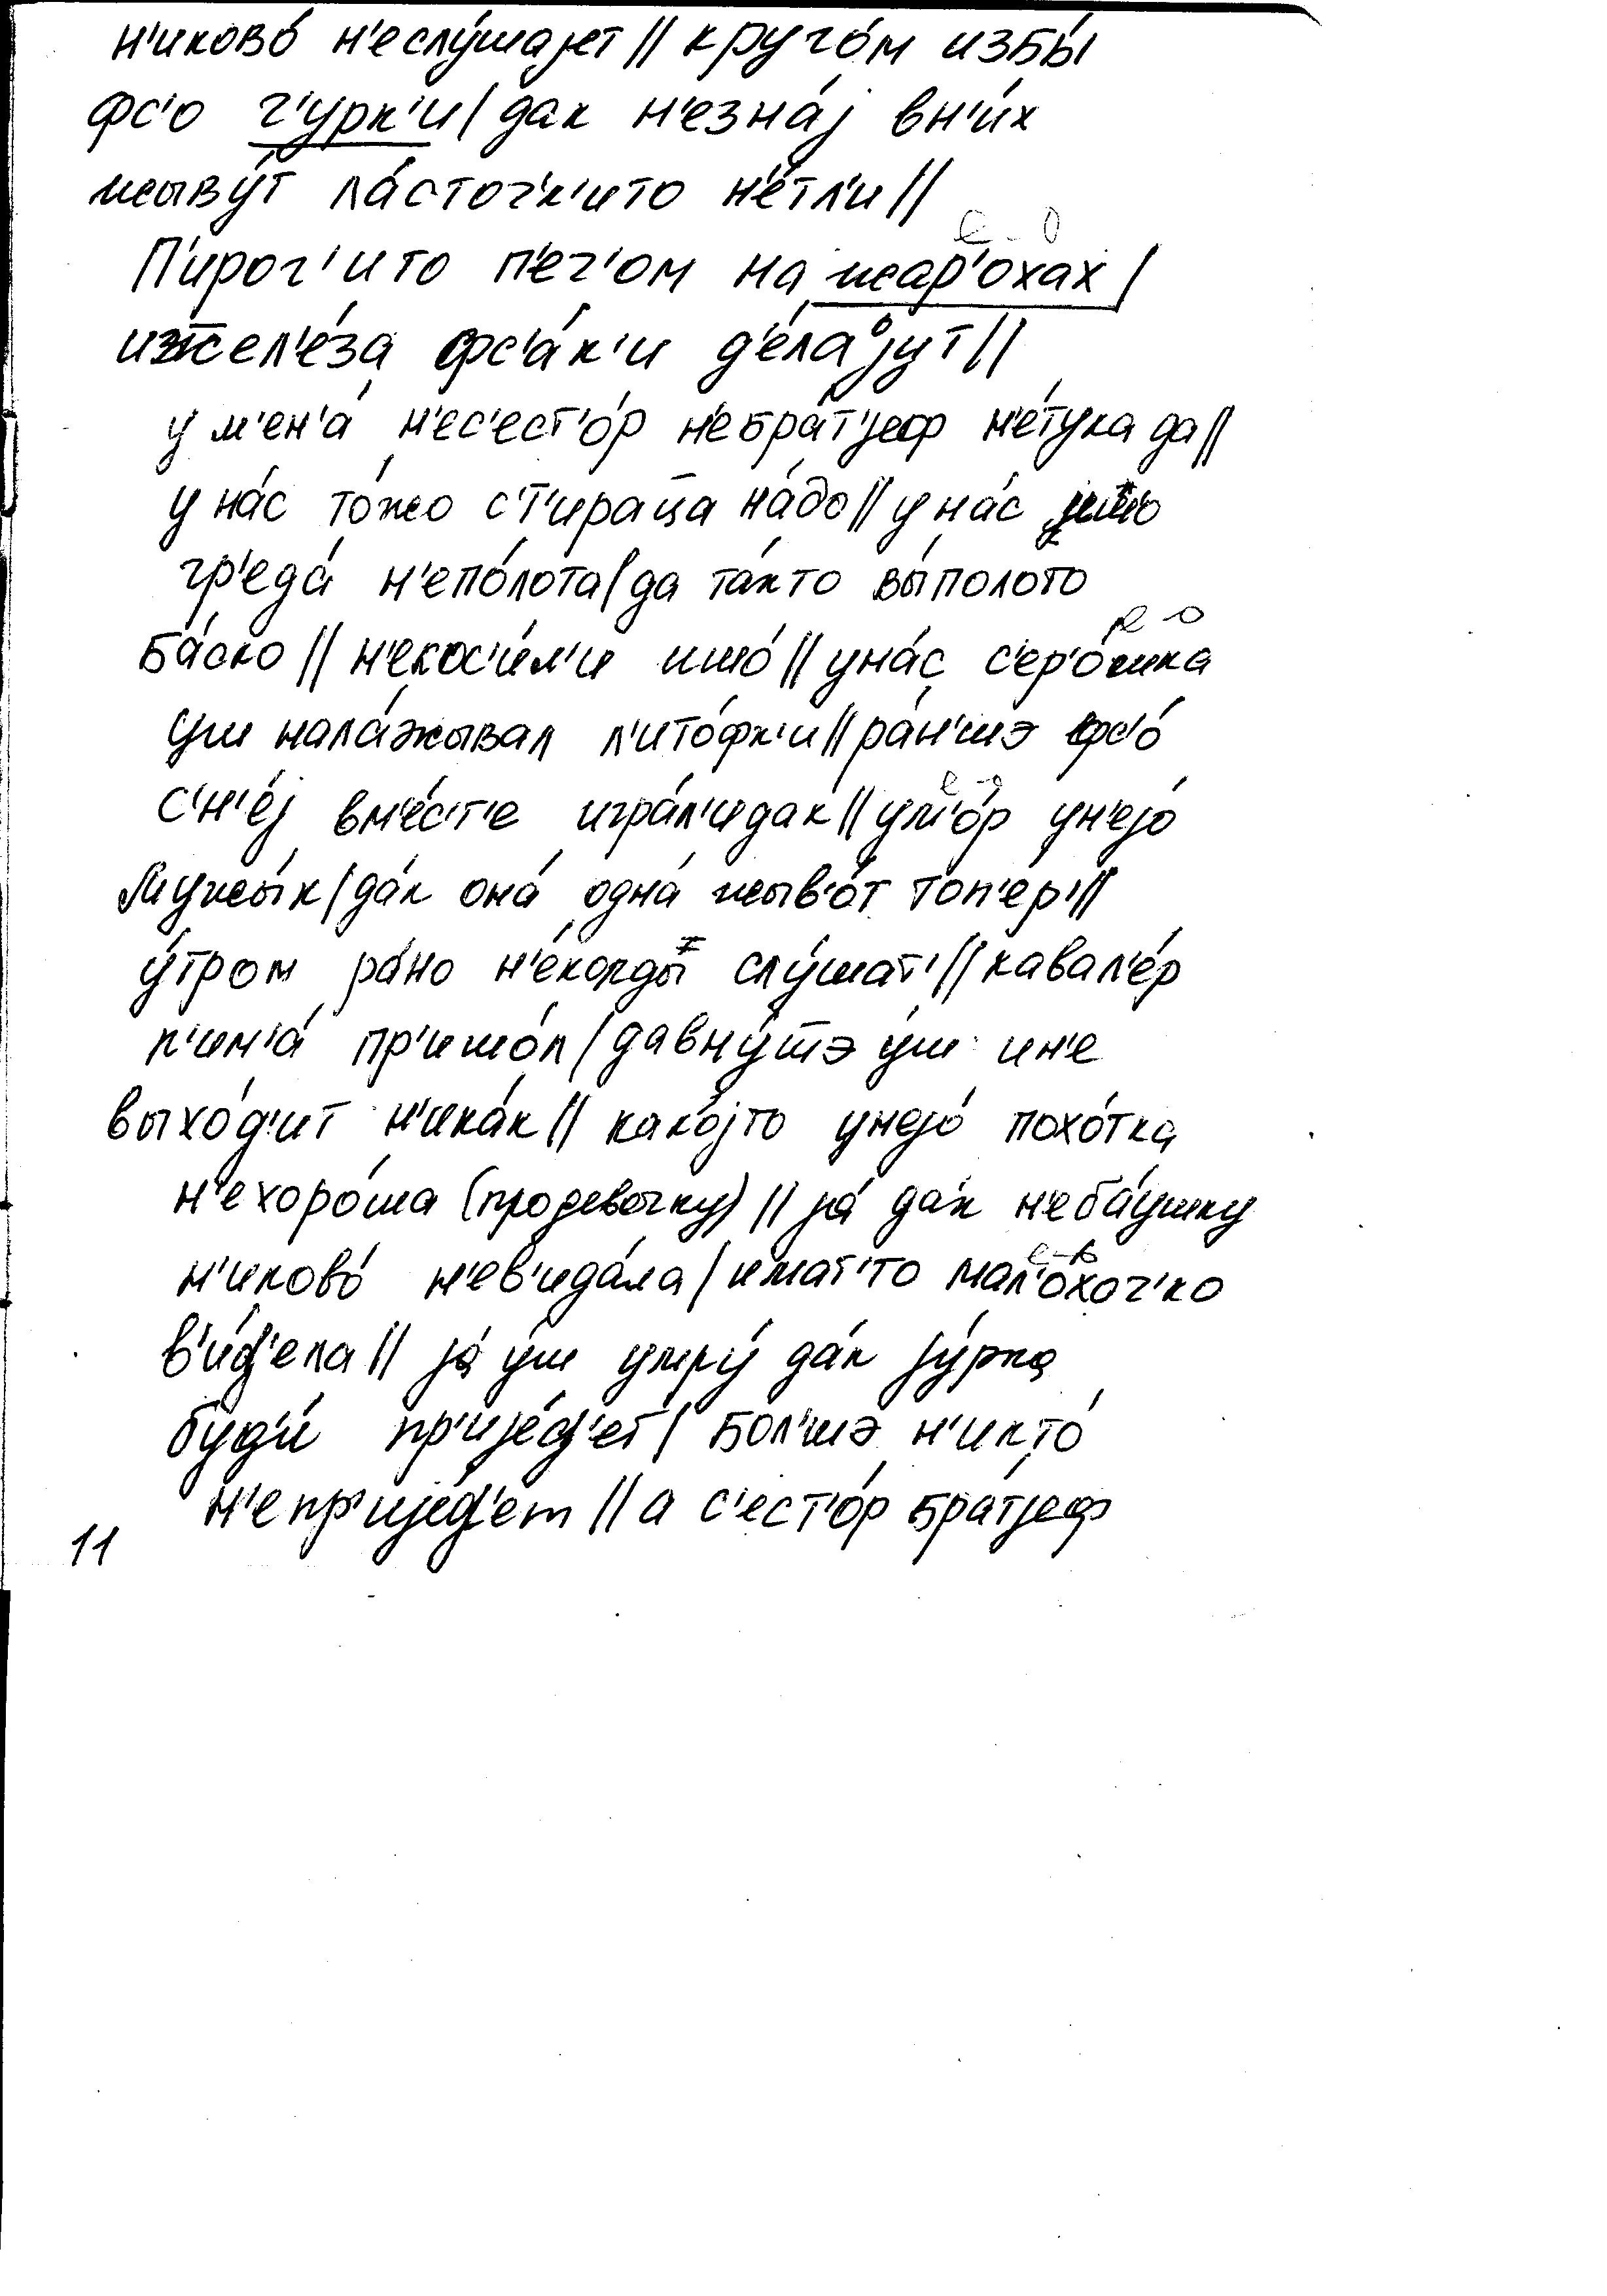 н'иково́ н'еслу́шаjет || круго́м избы́
фс'о г'урк'и | дак н'езна́j вн'и́х
жыву́т ла́сточ'к'ито н'е́тл'и ||
П'ирог'ито п'еч'о́м на жар'о́хах |
ижжел'е́за фс'а́к'и д'е́лаjут ||
у м'ен'а́ н'ес'ест'о́р н'ебра́т'jеф н'е́тука да ||
у на́с то́жо ст'ира́ца на́до || у на́с
гр'еда́ н'епо́лота | да та́кто вы́полото
ба́ско || н'екос'и́л'и ишо́ || у на́с с'ер'о́шка
уш нала́жывал л'ито́фк'и || ра́н'шэ фс'о́
с'н'е́j вм'е́с'т'е игра́л'идак || ум'о́р ун'еjо́
мужы́к | да́к она́ одна́ жыв'о́т топ'е́р' ||
у́тром ра́но н'е́когды слу́шат' || кавал'е́р
к'им'а́ пр'ишо́л | давну́шэ у́ш ин'е
выхо́д'ит н'ика́к || како́jто ун'еjо́ похо́тка
н'ехоро́ша (про девочку) || jа́ да́к н'еба́ушку
н'иково́ н'ев'ида́ла | имат'то мал'о́хоч'ко
в'и́д'ела || jа́ у́ш умру́ да́к jу́рка
буд'и́ пр'иjе́д'ет | бол'шэ н'икто́
н'епр'иjе́д'ет || а с'ест'о́р бра́тjеф
11